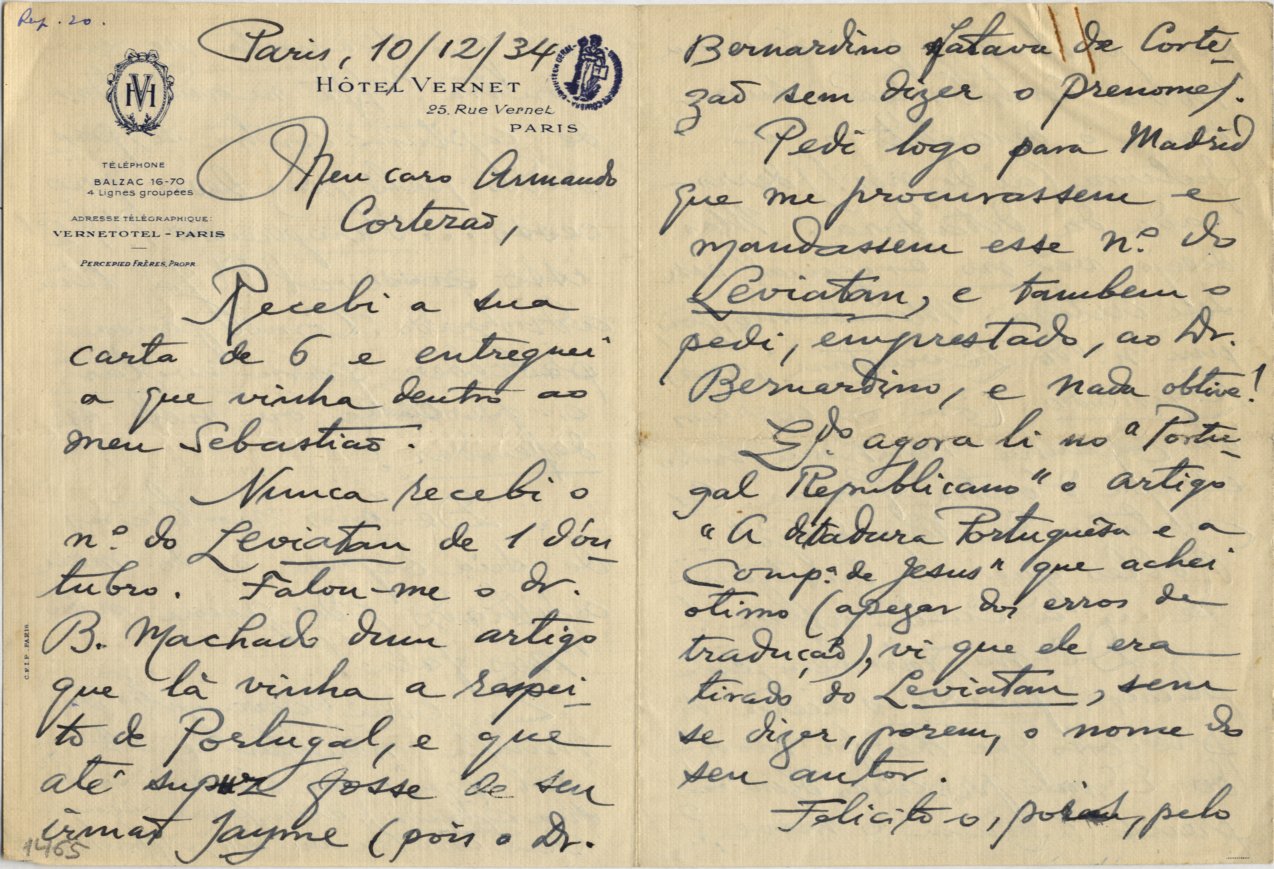 Rep. 20.
Paris, 10/12/34
HÔTEL VERNET
25, Rue Vernet
PARIS
TÉLÉPHONE
BALZAC 16-70
4 Lignes groupées
ADRESSE TÉLÉGRAPHIQUE:
VERNETOTEL - PARIS
PERCEPIED FRÈRES, PROPR
Meu caro Armando
Cortezaõ,
Recebi a sua
carta de 6 e entreguei
a que vinha dentro ao
meu Sebastiaõ.
Nunca recebi o
nº do Leviatan de 1 d'ou-
tubro. Falou-me o dr.
B. Machado dum artigo
que lá vinha a respei-
to de Portugal, e que
até supuz fosse de seu
irmaõ Jayme (pois o Dr.
1465
C.F.I.P. PARIS
Bernardino falava de Corte-
zaõ sem dizer o prenome).
Pedi logo para Madrid
que me procurassem e
mandassem esse nº do
Leviatan, e tambem o
pedi, emprestado, ao Dr.
Bernardino, e nada obtive!
Qdo agora li no "Portu-
gal Republicano" o artigo
"A ditadura Portuguêsa e a
Compª de Jesus" que achei
otimo (apezar dos erros de
traduçaõ), vi que ele era
tirado do Leviatan, sem
se dizer, porem, o nome do
seu autor.
Felicito-o, pois, pelo